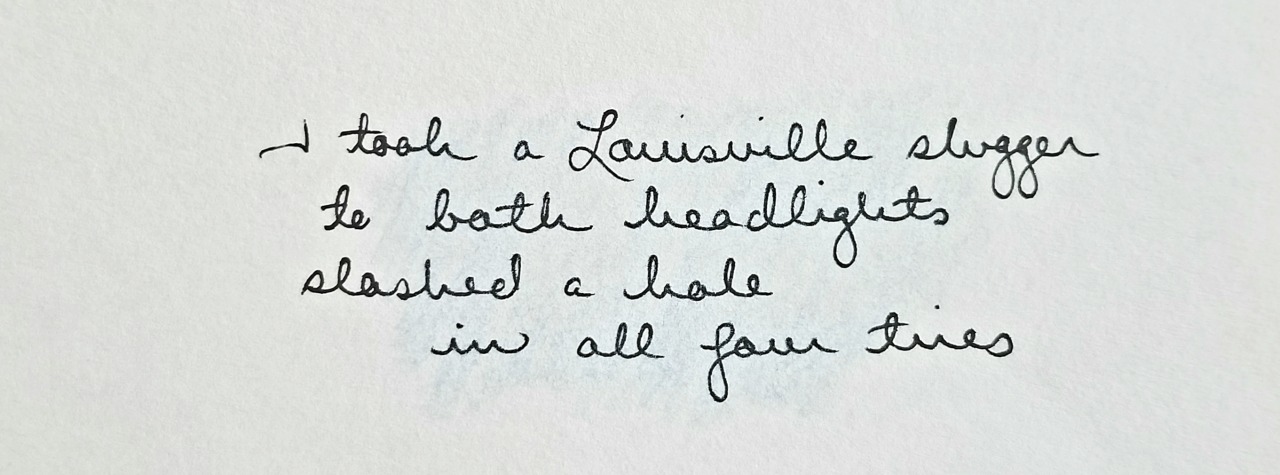 I took a Louisville slugger
to both headlights
slashed a hole
in all four tires